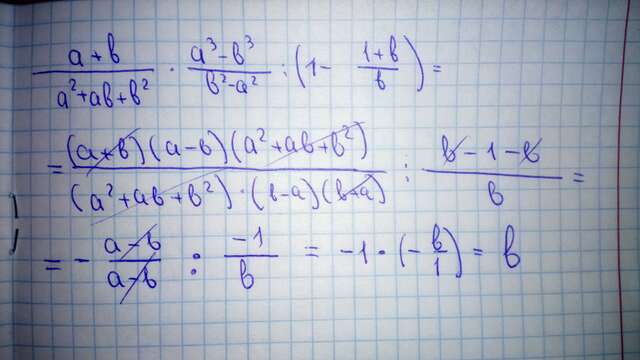 (a+b)/(a²+ab+b²) · (a³-b³)/(b²-a²) : (1- (1+b)/b) =
= (a+b)(a-b)(a²+ab+b²)/((a²+ab+b²)·(b-a)(b+a)) : (b-1-b)/b =
= - (a-b)/(a-b) : (-1)/b = -1·(-b/1) = b